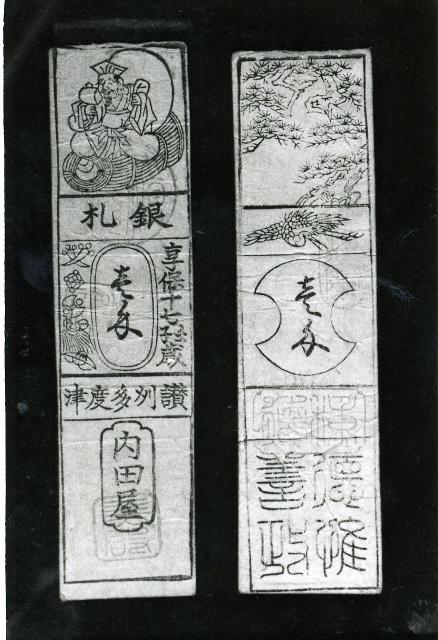 銀札
享保十七壬子歳
壱匁
讃刕多度津
内田屋
壱匁
徳惟
善政